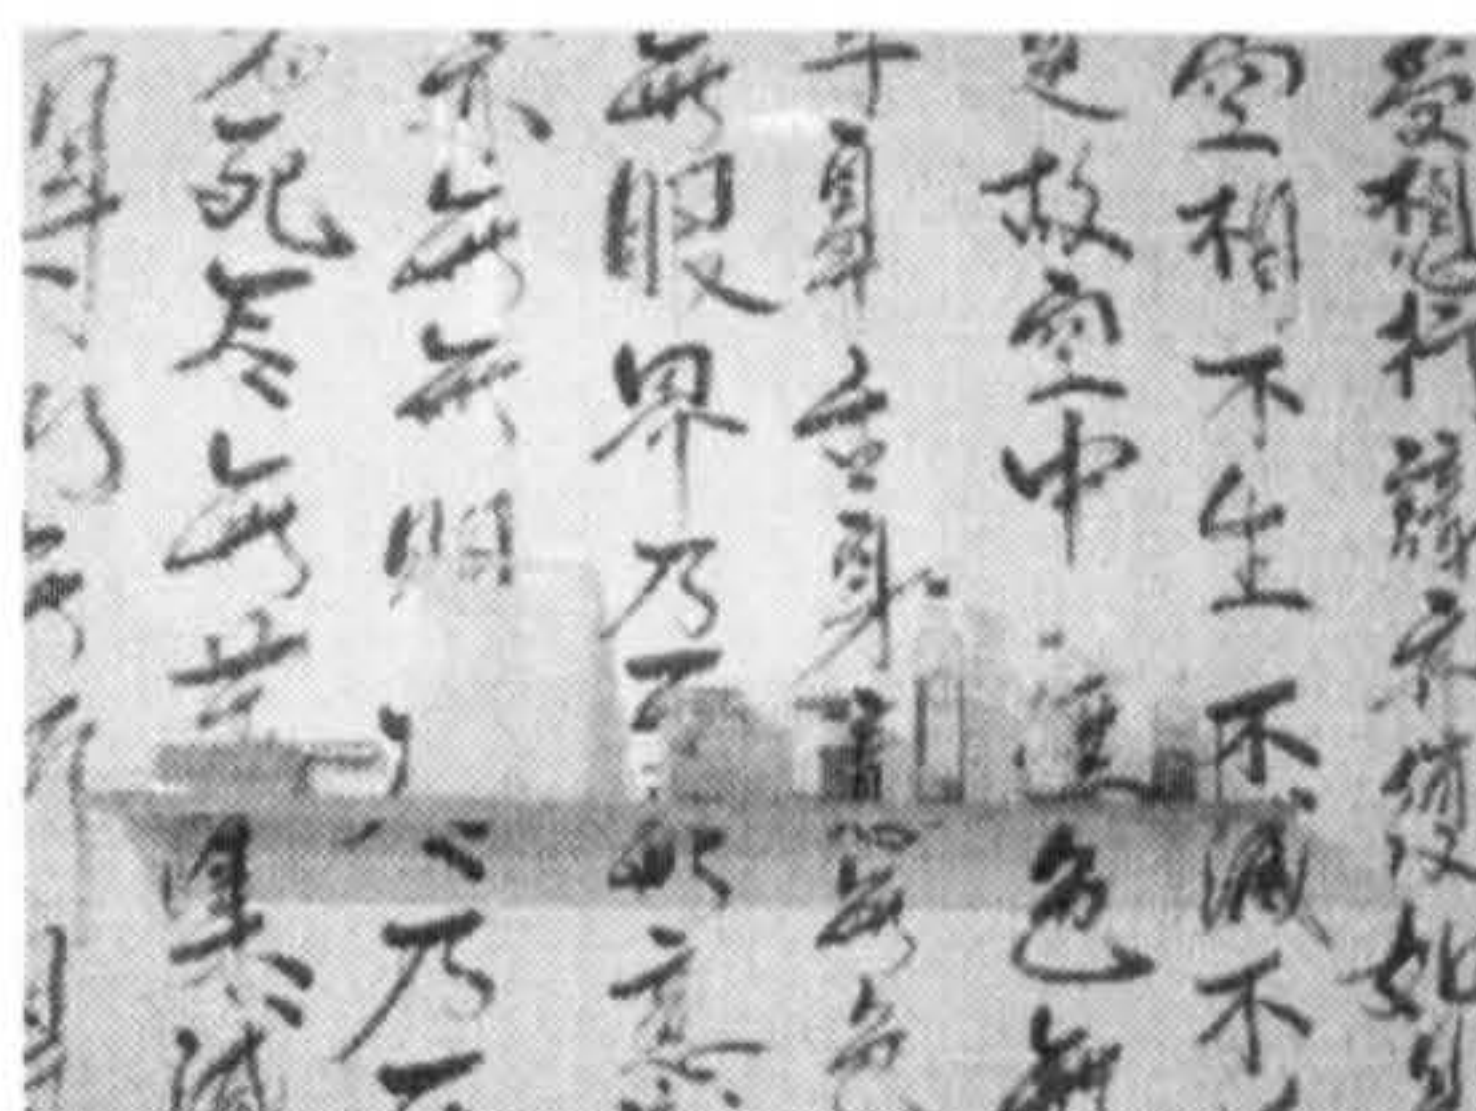 受想行識亦復如
空相不生不滅不
是故空中色無
鼻舌身意無色
無眼界乃至無意
無無明乃至
死尽無苦集滅